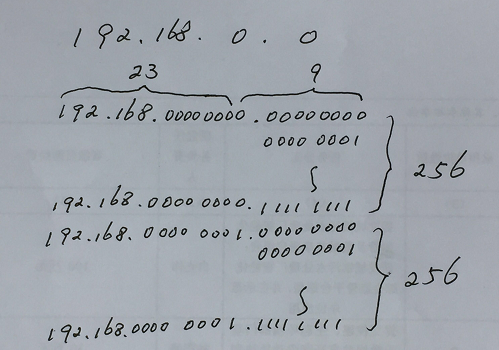 192.168.0.0
23 9
192.168.00000000.00000000
0000 0001
192.168.0000 0000.1111 1111
256
192.168.0000 0001.0000 0000
0000 0001
192.168.0000 0001.1111 1111
256